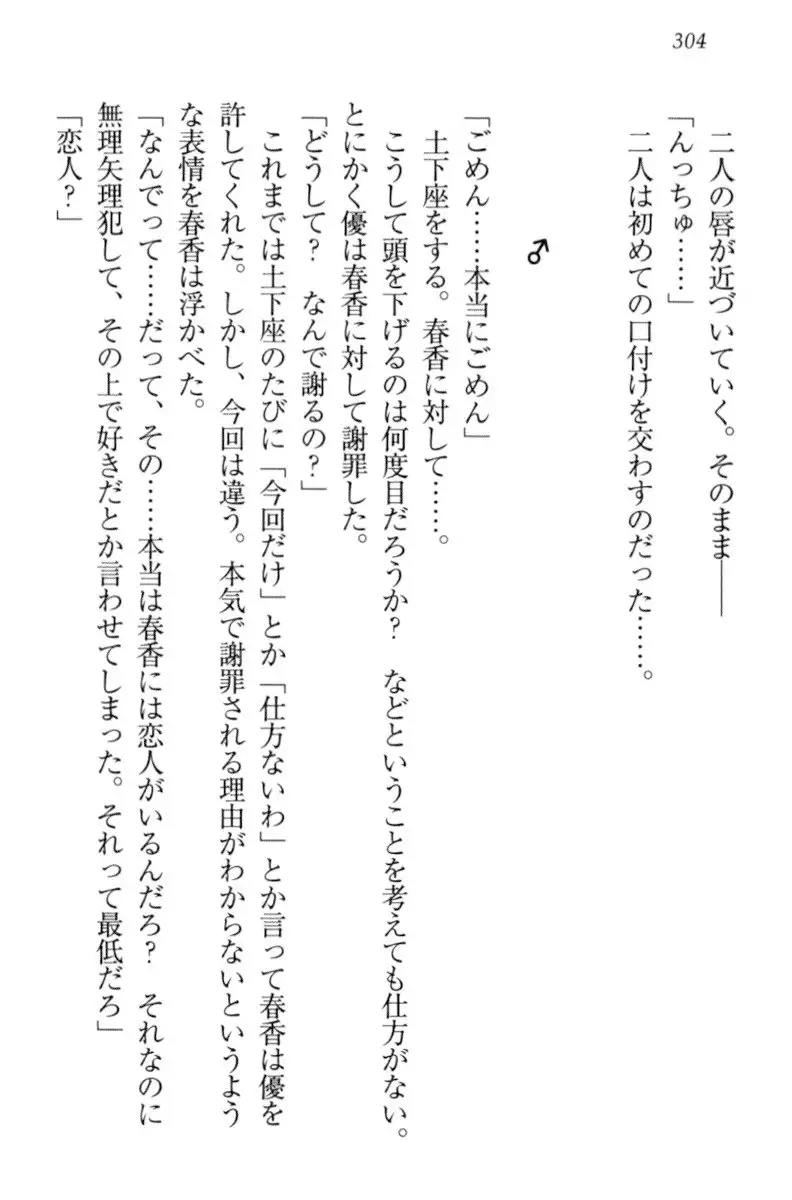 304
二人の唇が近づいていく。そのまま――
「んっちゅ……」
二人は初めての口付けを交わすのだった……。
♂
「ごめん……本当にごめん」
土下座をする。春香に対して……。
こうして頭を下げるのは何度目だろうか？　などということを考えても仕方がない。
とにかく優は春香に対して謝罪した。
「どうして？　なんで謝るの？」
これまでは土下座のたびに「今回だけ」とか「仕方ないわ」とか言って春香は優を
許してくれた。しかし、今回は違う。本気で謝罪される理由がわからないというよう
な表情を春香は浮かべた。
「なんでって……だって、その……本当は春香には恋人がいるんだろ？　それなのに
無理矢理犯して、その上で好きだとか言わせてしまった。それって最低だろ」
「恋人？」